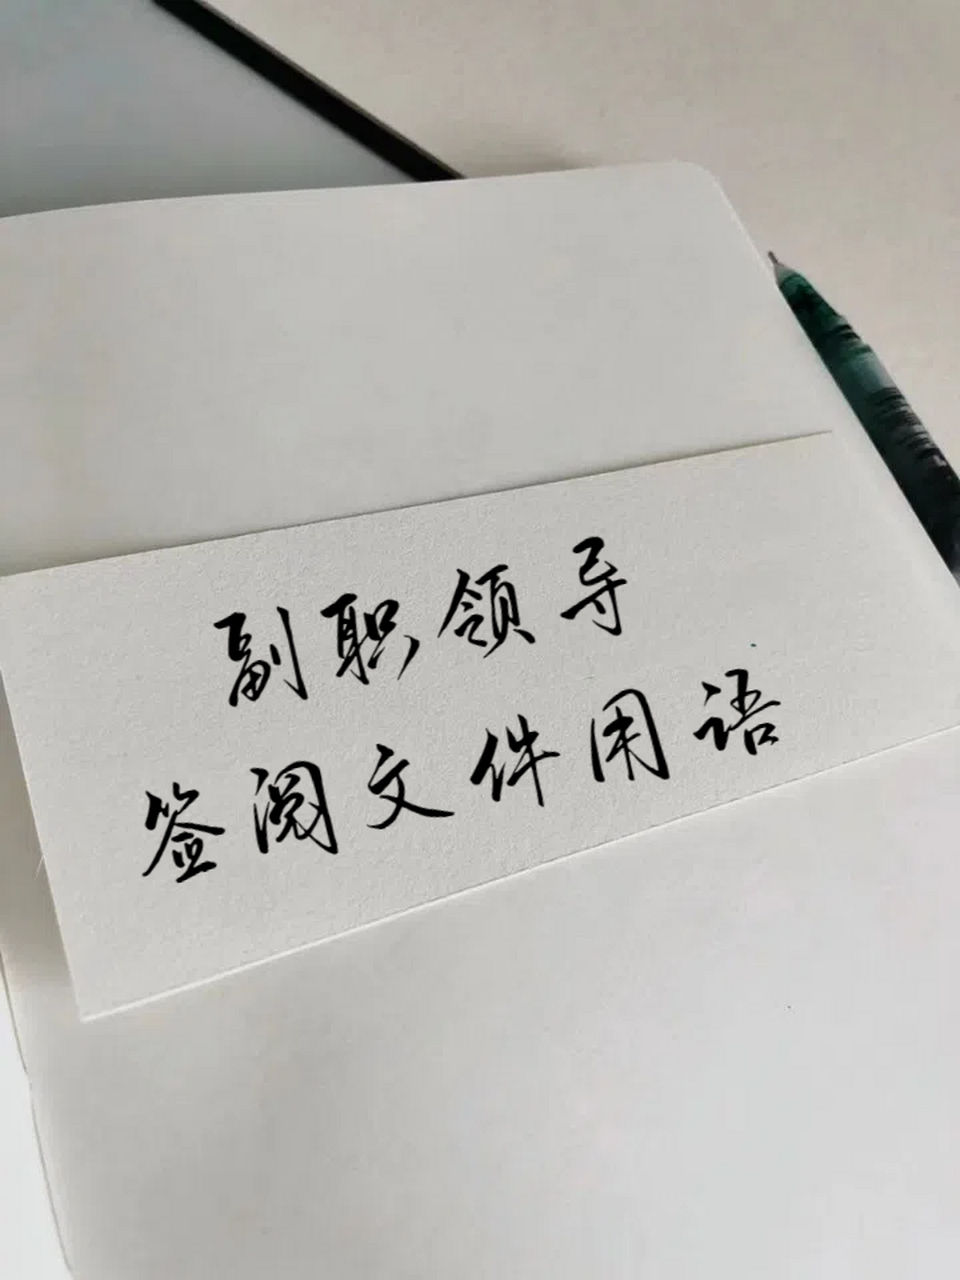 副职领导
签阅文件用语